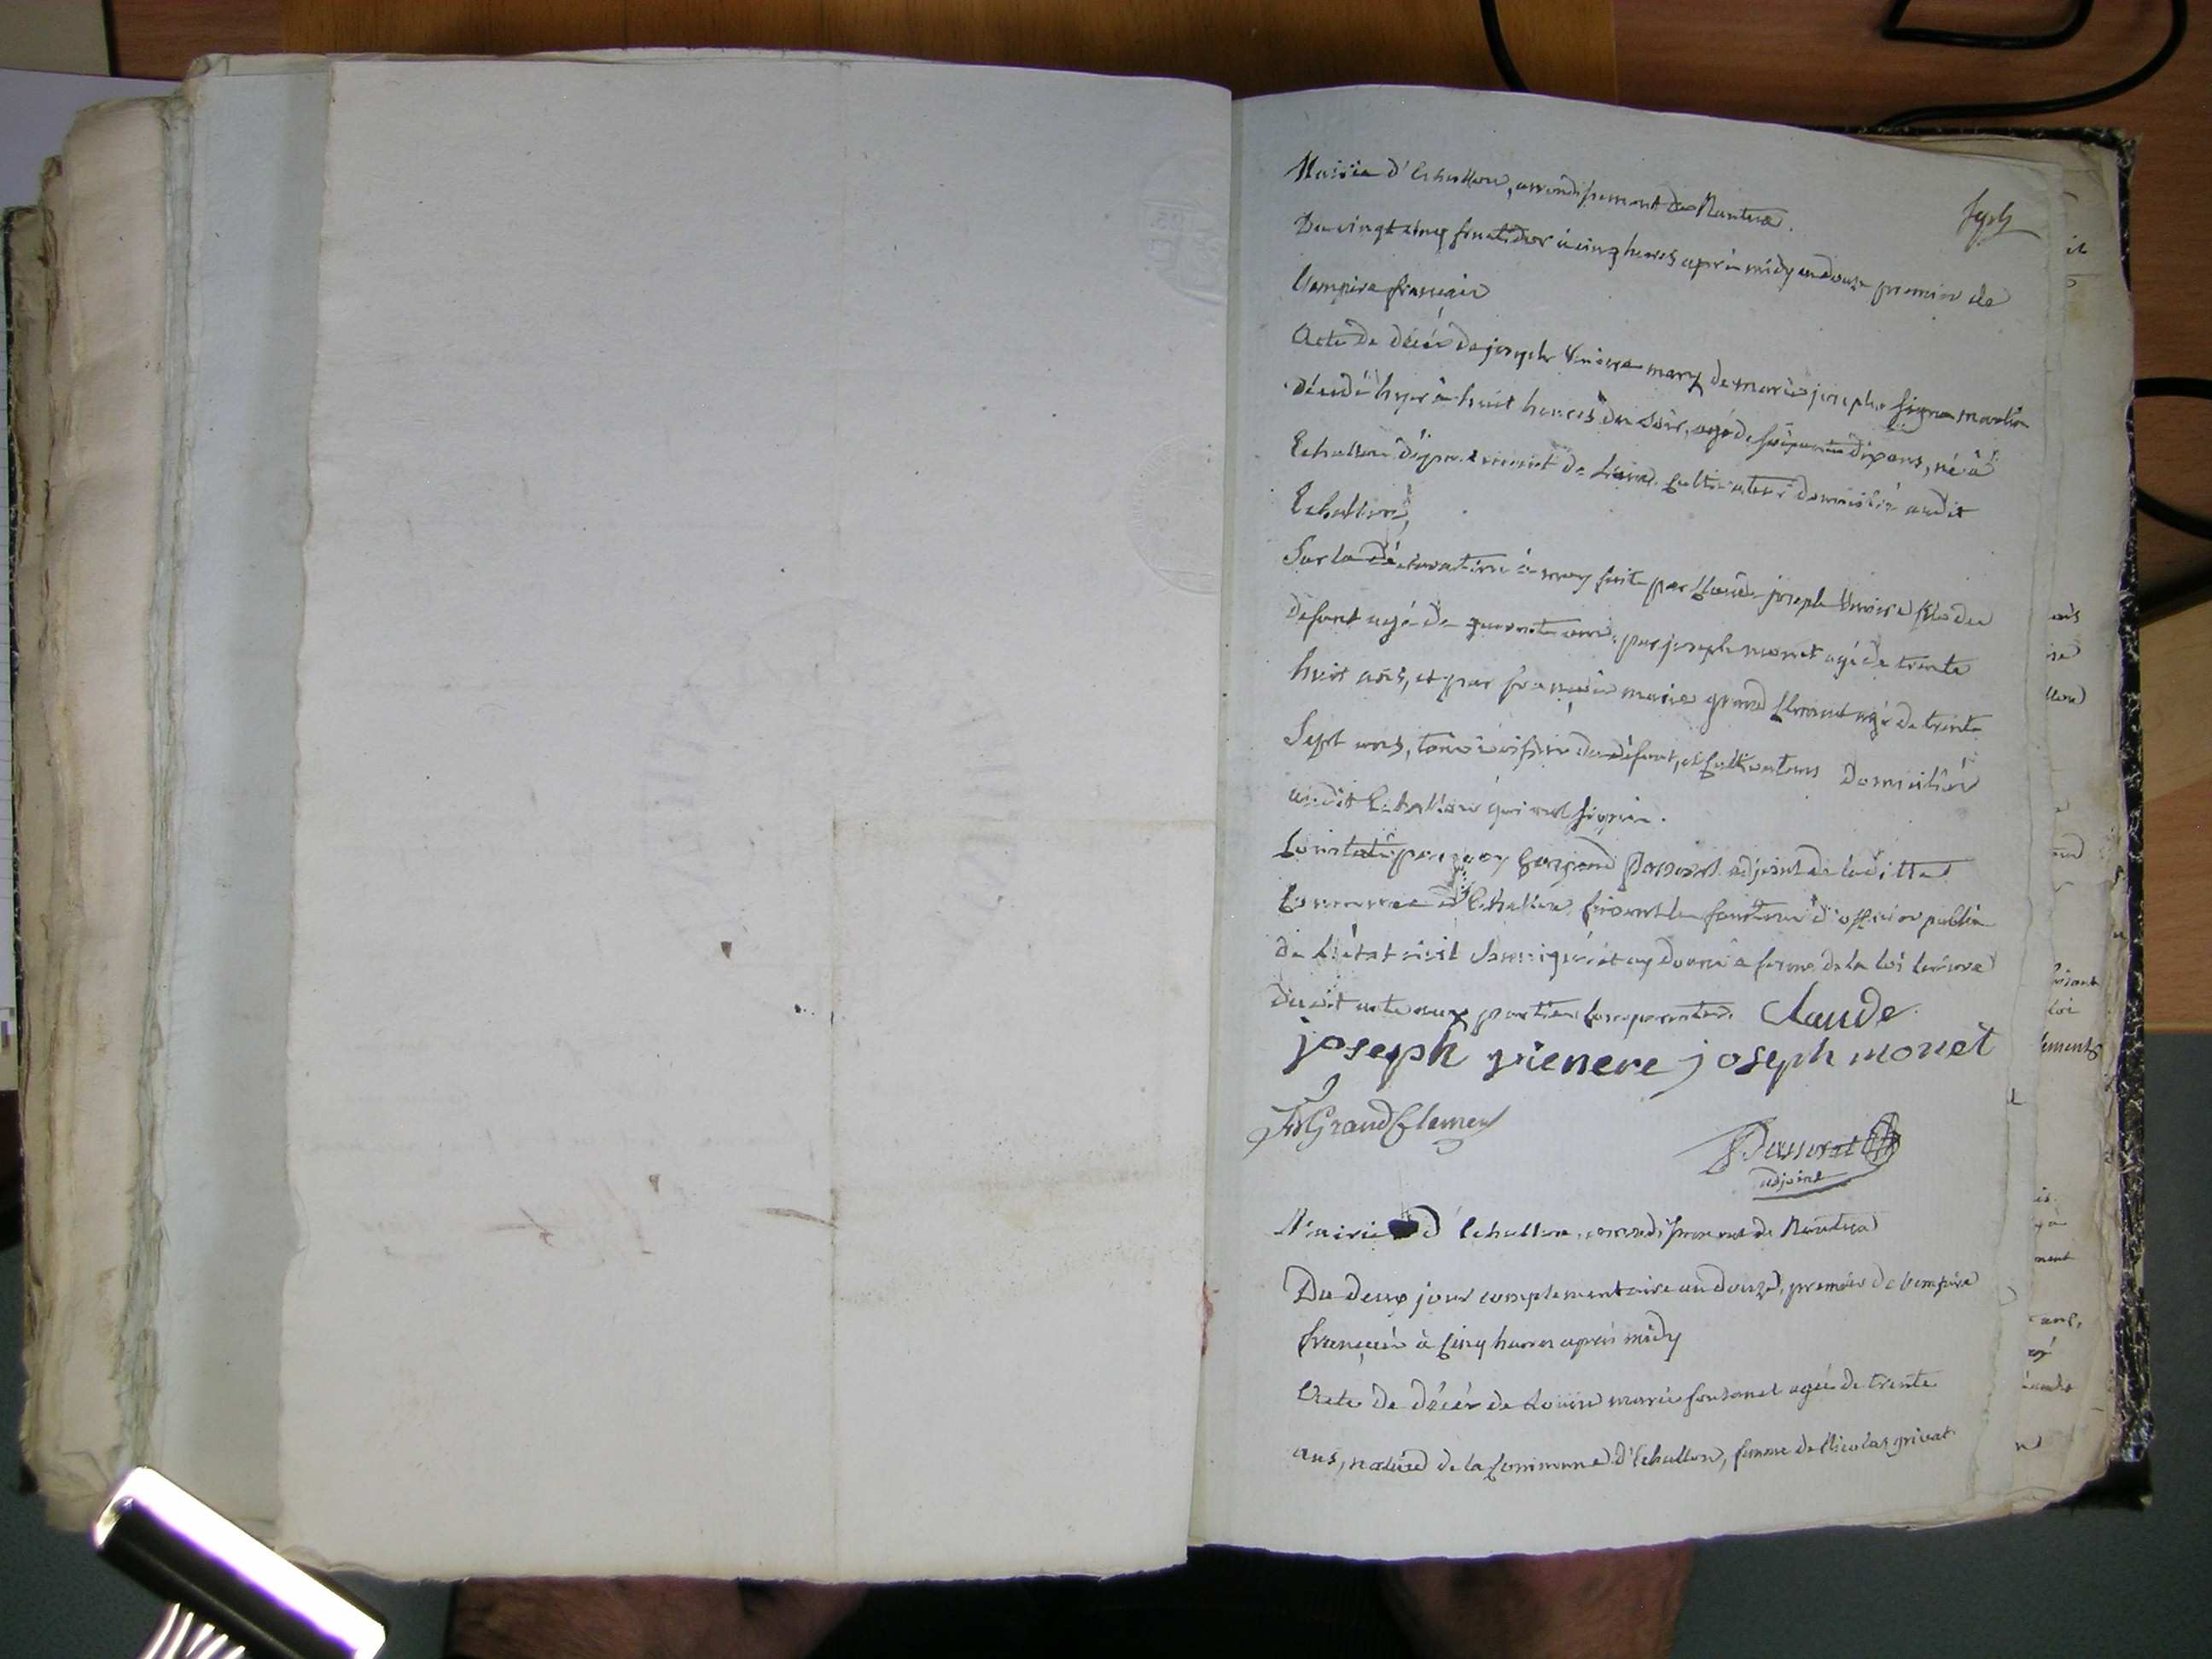 Mairie d'Echallon, arrondissement de Nantua.
sept
Du vingt cinq fructidor à cinq heures après midy an douze premier de
l'empire français
Acte de décès de joseph mary de marie josephe
décédé hyer à huit heures du soir, agé de soixante dix ans, né à
Echallon département de Laind. Cultivateur domicilié audit
Echallon,
Sur la déclaration à moy faite par Claude joseph fils du
defunt agé de quarante ans, par joseph monet agé de trente
huit ans, et par françois marie grand Clement agé de trente
Sept ans, tous voisins du defunt, et Cultivateurs Domiciliés
audit Echallon qui ont signés.
Constaté par moy Passerat adjoint de laditte
Commune d'Echallon faisant les fonctions d'officier public
de L'état civil Soussigné et ay donné a forme de la loi lecture
dudit acte aux parties comparantes. Claude
joseph vienere joseph monet
fMGrandClement
Passerat
adjoint
Mairie d'Echallon, arrondissement de Nantua
Du deux jour complementaire an douze, premier de l'empire
français à Cinq heures après midy
Acte de décès de Louise marie fontanel agée de trente
ans, native de la Commune d'Echallon, femme de Nicolas grivat